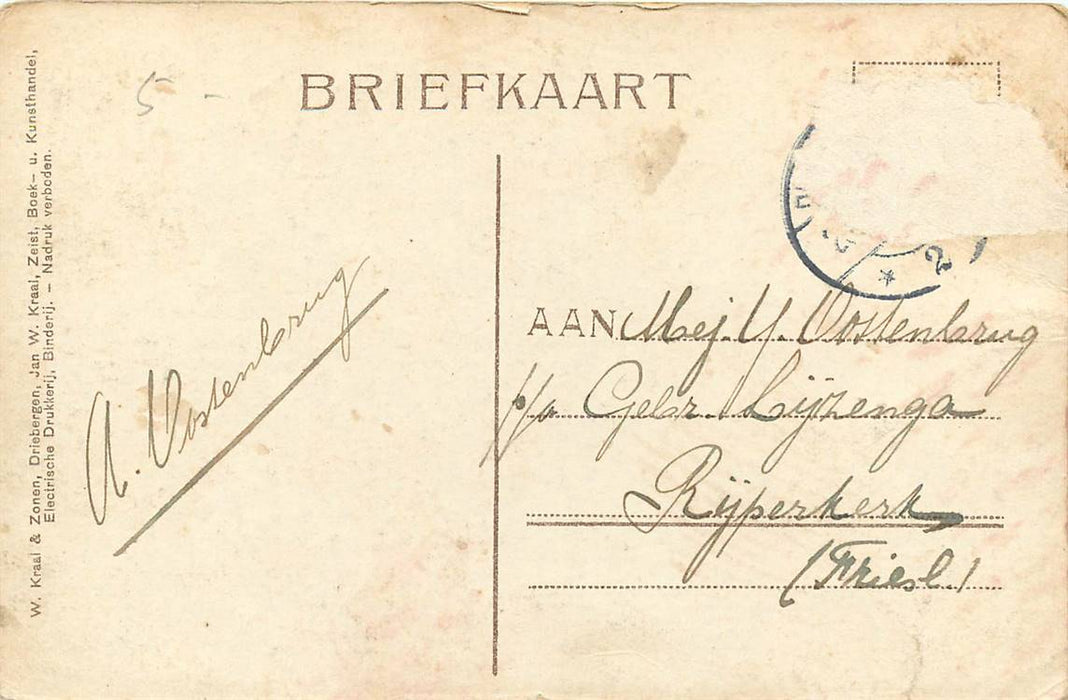 BRIEFKAART
5 -
W. Kraal & Zonen, Driebergen, Jan W. Kraal, Zeist, Boek- u. Kunsthandel,
Electrische Drukkerij, Binderij. — Nadruk verboden.
A. Oostenbrug
AAN Mej. Y. Oostenbrug
p/a Gebr. Lijzenga
Rijperkerk
(Friesl)